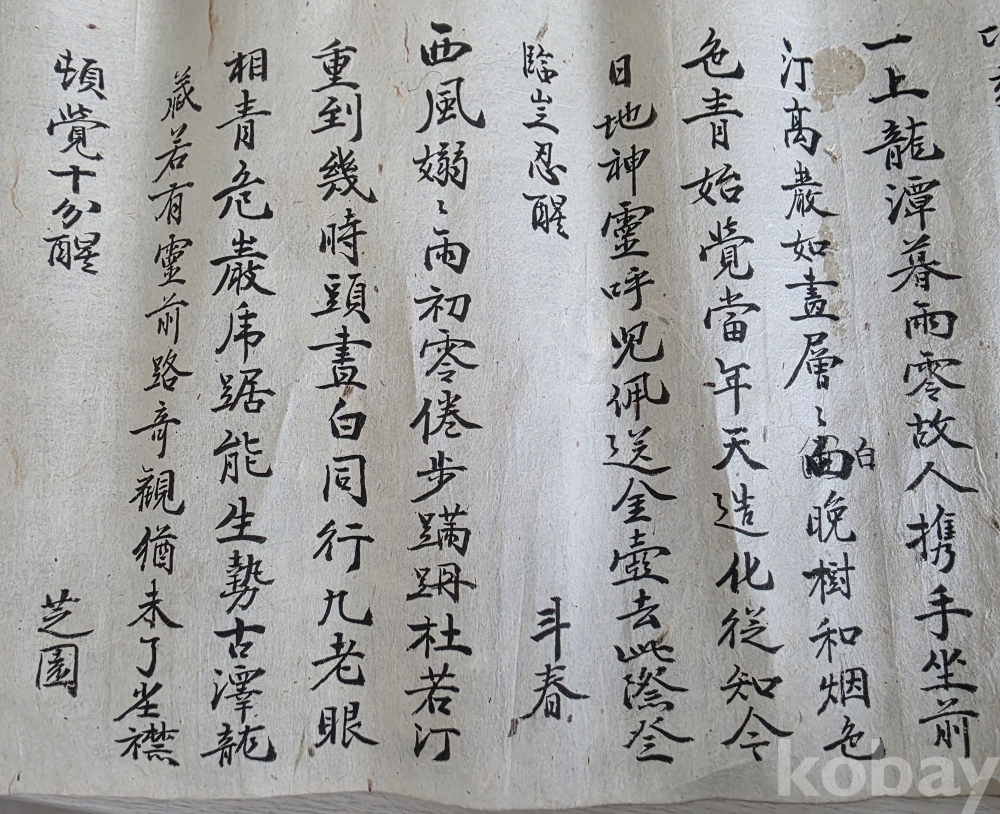 一上龍潭暮雨零故人携手坐前
汀高巖如畫層〻白晩樹和烟色
色青始覺當年天造化從知今
日地神靈呼兒佩送金壺去此際登
臨豈忍醒 斗春
西風嫋〻雨初零倦步蹣跚杜若汀
重到幾時頭盡白同行九老眼
相青危巖虎踞能生勢古潭龍
藏若有靈前路奇觀猶未了坐襟
頓覺十分醒 芝園
kobay